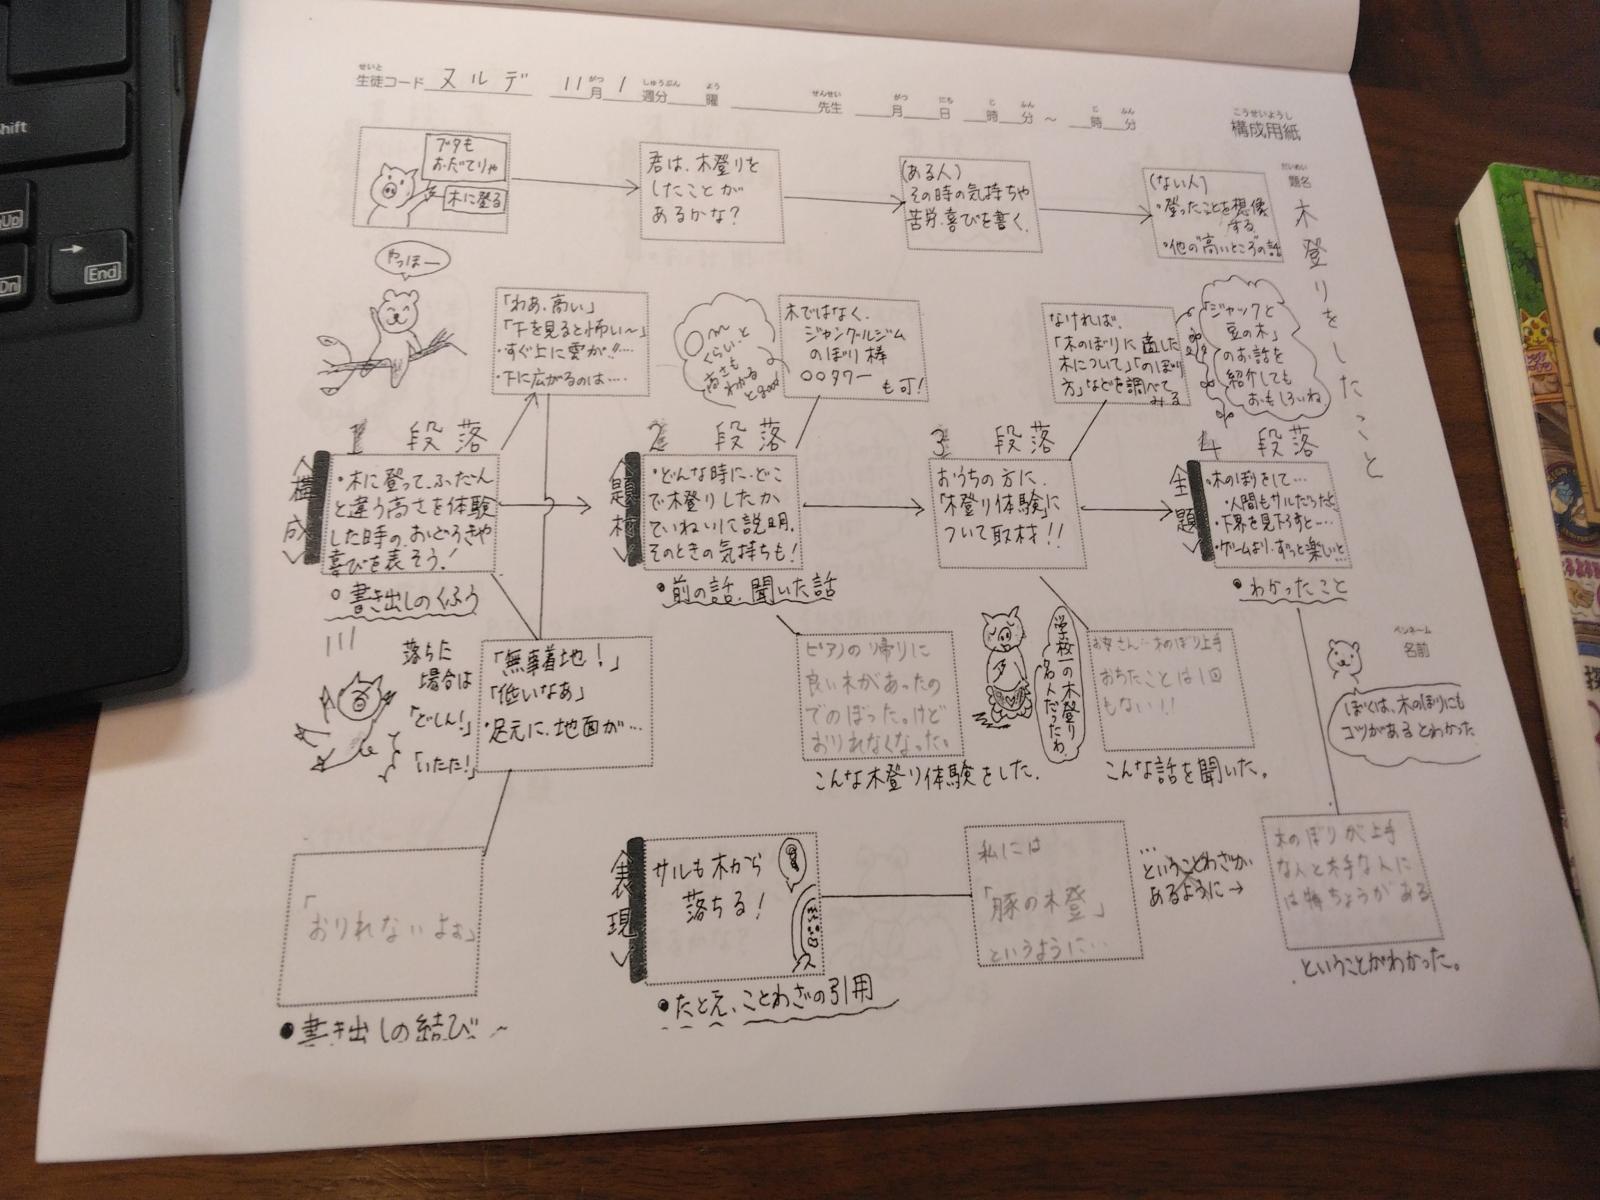 せいと
生徒コード ヌルデ 11月 1週分 曜 先生 月 日 時 分 ～ 時 分
がつ しゅうぶん よう せんせい がつ にち じ ふん じ ふん
こうせいようし
構成用紙
だいめい
題名
木登りをしたこと
ブタも
おだてりゃ
木に登る
君は、木登りを
したことが
あるかな？
(ある人)
その時の気持ちや
苦労、喜びを書く。
(ない人)
・登ったことを想像
する
・他の"高いところ"の話
やっほー
「わあ、高い」
「下を見ると怖い～」
・すぐ上に雲が!!…
・下に広がるのは…
○m
くらい、と
高さも
わかる
とgood
木ではなく、
ジャングルジム
のぼり棒
○○タワー
も可！
なければ、
「木のぼりに適した
木について」「のぼり
方」などを調べて
みる
「ジャックと
豆の木」
のお話を
紹介しても
おもしろいね
1 段落
構成
・木に登って、ふだん
と違う高さを体験
した時の、おどろきや
喜びを表そう！
○書き出しのくふう
2 段落
題材
・どんな時に、どこ
で木登りしたか
ていねいに説明。
そのときの気持ちも！
●前の話、聞いた話
3 段落
おうちの方に、
「木登り体験」に
ついて取材！！
4 段落
主題
・木のぼりをして…
・人間もサルだったと
・下界を見下ろすと…
・ゲームより、ずっと楽しいと
●わかったこと
落ちた
場合は
「どしん！」
「いたた！」
「無事着地！」
「低いなあ」
・足元に、地面が…
ピアノの帰りに
良い木があったの
でのぼった。けど
おりれなくなった。
こんな木登り体験をした。
学校一の木登り
名人だったわ
お母さん…木のぼり上手
おちたことは1回
もない!!
こんな話を聞いた。
ペンネーム
名前
ぼくは、木のぼりにも
コツがあるとわかった
「
おりれないよぉ」
●書き出しの結び～
表現
サルも木から
落ちる！
●たとえ、ことわざの引用
私には
「豚の木登」
というように…
…ということわざが
あるように→
木のぼりが上手
な人と下手な人に
は特ちょうがある
ということがわかった。
Shift
PgUp
PgDn
End